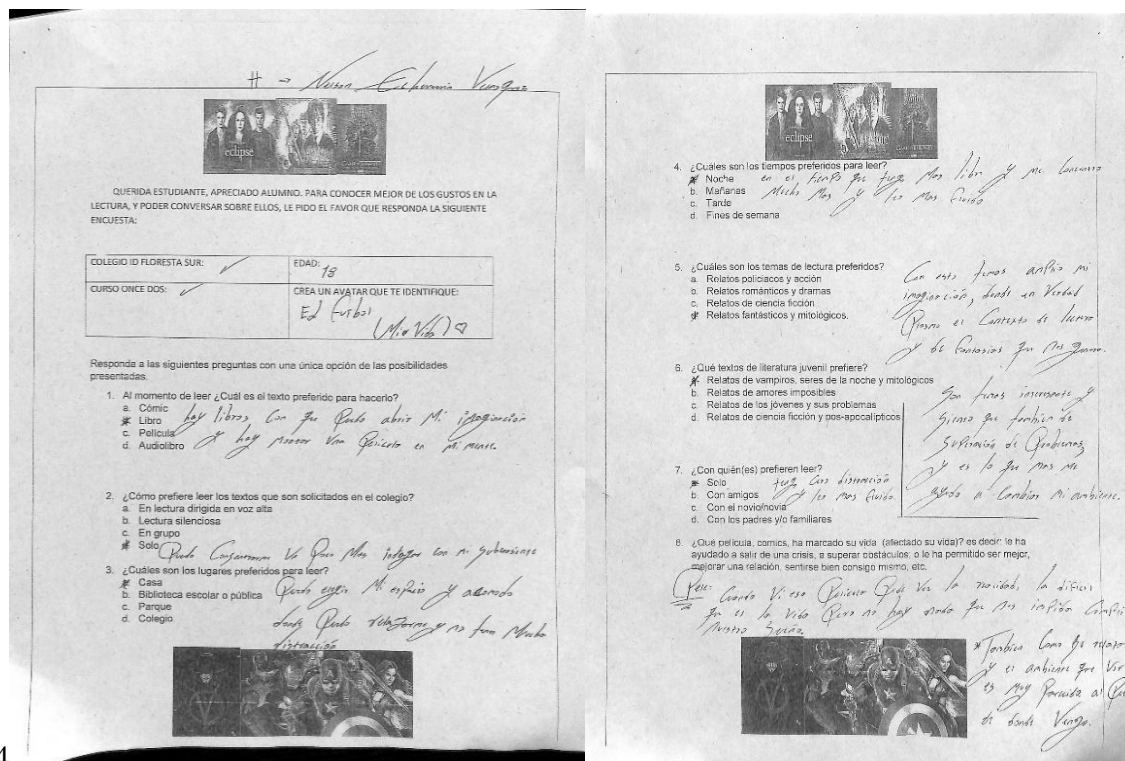 # → Nelson Echavarria Vasquez
eclipse
QUERIDA ESTUDIANTE, APRECIADO ALUMNO. PARA CONOCER MEJOR DE LOS GUSTOS EN LA
LECTURA, Y PODER CONVERSAR SOBRE ELLOS, LE PIDO EL FAVOR QUE RESPONDA LA SIGUIENTE
ENCUESTA:
COLEGIO ID FLORESTA SUR: ✓ EDAD: 18
CURSO ONCE DOS: ✓ CREA UN AVATAR QUE TE IDENTIFIQUE:
El Futbol
(Mi Vida) ♡
Responda a las siguientes preguntas con una única opción de las posibilidades
presentadas.
1. Al momento de leer ¿Cuál es el texto preferido para hacerlo?
a. Cómic
Libro hay libros con que Puedo abrir Mi imaginación
c. Película y hay una Pelicula en mi mente.
d. Audiolibro
2. ¿Cómo prefiere leer los textos que son solicitados en el colegio?
a. En lectura dirigida en voz alta
b. Lectura silenciosa
c. En grupo
Solo Puedo Mas con mi
3. ¿Cuáles son los lugares preferidos para leer?
Casa Puedo elegir Mi espacio y
b. Biblioteca escolar o pública
c. Parque donde Puedo relajarme y no Mucha
d. Colegio distracción
4. ¿Cuáles son los tiempos preferidos para leer?
Noche en el tiempo que tengo Mas libre y me concentro
b. Mañanas Mucho Mas y leo mas fluido
c. Tarde
d. Fines de semana
5. ¿Cuáles son los temas de lectura preferidos?
a. Relatos policiacos y acción
b. Relatos románticos y dramas
c. Relatos de ciencia ficción
Relatos fantásticos y mitológicos.
Con esto temas amplio mi
imaginación, donde en Verdad
el Contexto de
y de fantasias que mas
6. ¿Qué textos de literatura juvenil prefiere?
Relatos de vampiros, seres de la noche y mitológicos
b. Relatos de amores imposibles
c. Relatos de los jóvenes y sus problemas
d. Relatos de ciencia ficción y pos-apocalípticos
Son temas y
que tambien de
Superación de Problemas,
y es lo que mas me
ayuda a Cambiar mi ambiente.
7. ¿Con quién(es) prefieren leer?
Solo tengo distracción
b. Con amigos y leo mas fluido
c. Con el novio/novia
d. Con los padres y/o familiares
8. ¿Qué película, comics, ha marcado su vida (afectado su vida)? es decir: le ha
ayudado a salir de una crisis, a superar obstáculos, o le ha permitido ser mejor,
mejorar una relación, sentirse bien consigo mismo, etc.
Pele: Cuando Vi esa Pelicula Pude Ver la la dificil
que es la Vida Pero no hay nada que nos impida Cumplir
Nuestro Sueño.
* Tambien Como
y el ambiente que
es Muy Parecida a
de donde Vengo.